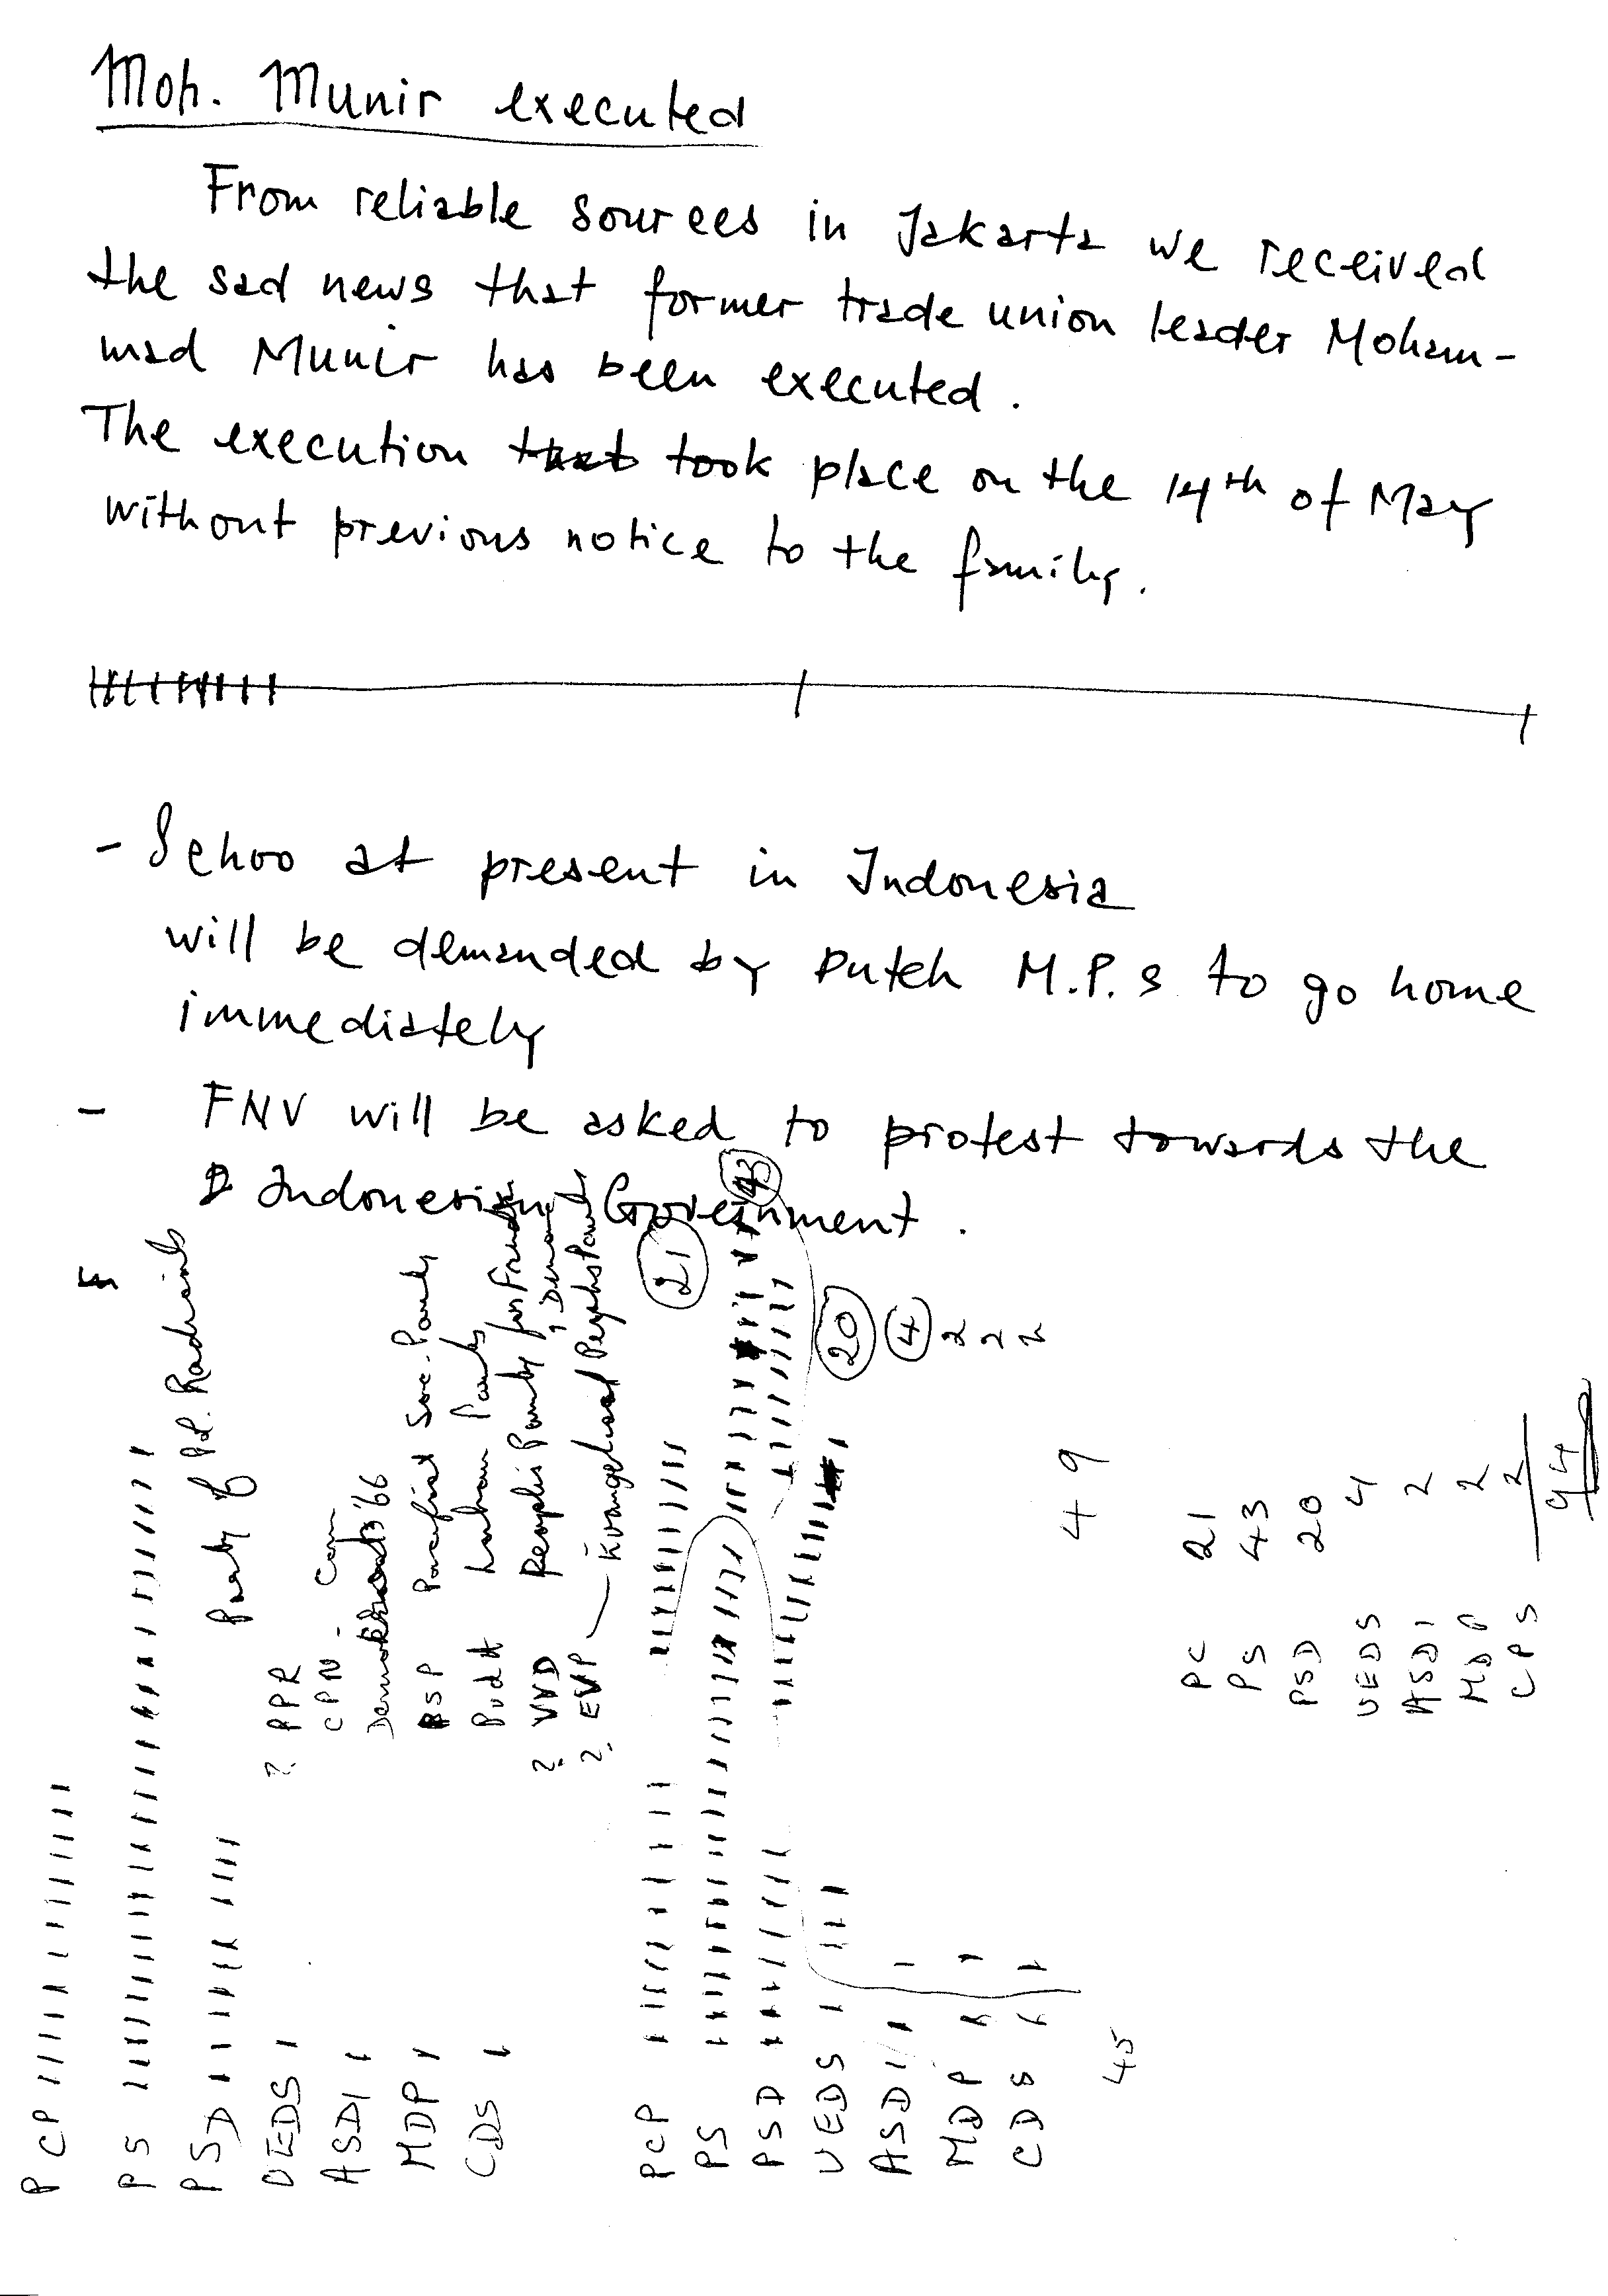 Moh. Munir executed
From reliable sources in Jakarta we received
the sad news that former trade union leader Moham-
mad Munir has been executed.
The execution that took place on the 14th of May
without previous notice to the family.
- Schoo at present in Indonesia
will be demanded by Dutch M.P.s to go home
immediately
- FNV will be asked to protest towards the
Indonesian Government.
PCP
PS
PSD
UEDS
ASDI
MDP
CDS
Party of Pol. Radicals
? PPR
CPN - Com
Demokraats '66
PSP Pacifist Soc. Party
PvdA Labour Party
? VVD People's Party for Freedom
, Democ
? EVP - Evangelical Peoples Party
PCP 21
PS 43
PSD 20
UEDS 4
ASDI 2
MDP 2
CDS 2
45
49
PC 21
PS 43
PSD 20
UEDS 4
ASDI 2
MDP 2
CPS 2
94